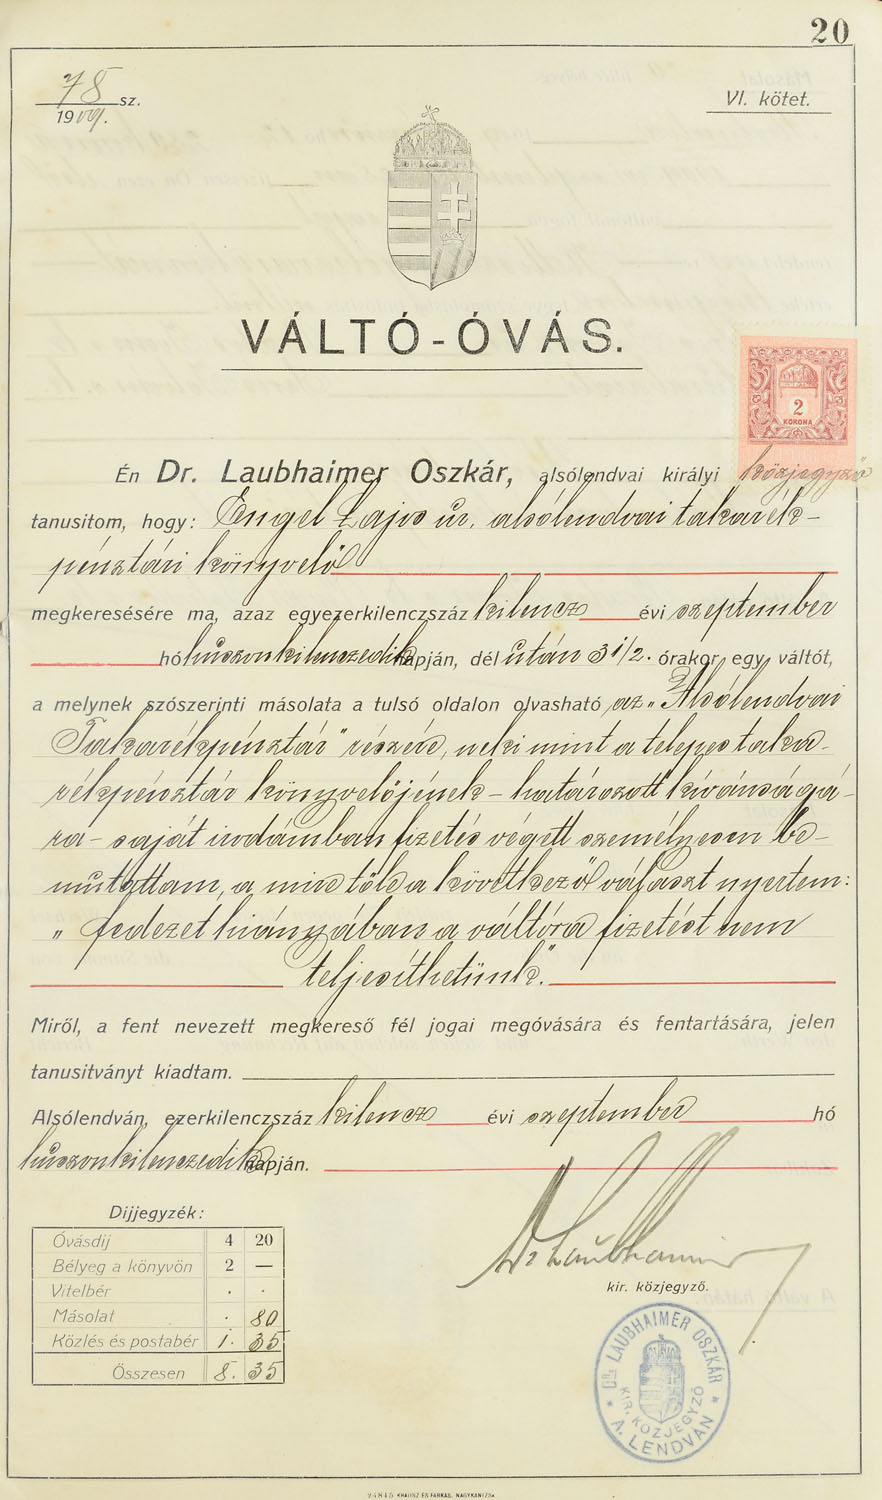 20
78 sz.
1909.
VI. kötet.
VÁLTÓ-ÓVÁS.
2
KORONA
Én Dr. Laubhaimer Oszkár, alsólendvai királyi közjegyző
tanusitom, hogy: Engel Lajos úr, alsólendvai takarék-
pénztári könyvelő
megkeresésére ma, azaz egyezerkilenczszáz kilencz évi szeptember
hó huszonkilenczedik napján, dél után 3 1/2. órakor egy váltót,
a melynek szószerinti másolata a tulsó oldalon olvasható, az „Alsólendvai
Takarékpénztár" részére, neki mint a telepes taka-
rékpénztár könyvelőjének - határozott kívánságá-
ra - saját irodámban fizetés végett személyesen be-
mutattam, a mire tőle a következő választ nyertem:
„fedezet hiányában a váltóra fizetést nem
teljesíthetünk".
Miről, a fent nevezett megkereső fél jogai megóvására és fentartására, jelen
tanusitványt kiadtam.
Alsólendván, ezerkilenczszáz kilencz évi szeptember hó
huszonkilenczedik napján.
Dr Laubhaimer
kir. közjegyző.
Dijjegyzék:
Óvásdij 4 20
Bélyeg a könyvön 2 —
Vitelbér . .
Másolat . 80
Közlés és postabér 1. 35
Összesen 8. 35
DR. LAUBHAIMER OSZKÁR
KIR. KÖZJEGYZŐ
A. LENDVÁN
KRAUSZ ÉS FARKAS, NAGYKANIZSA